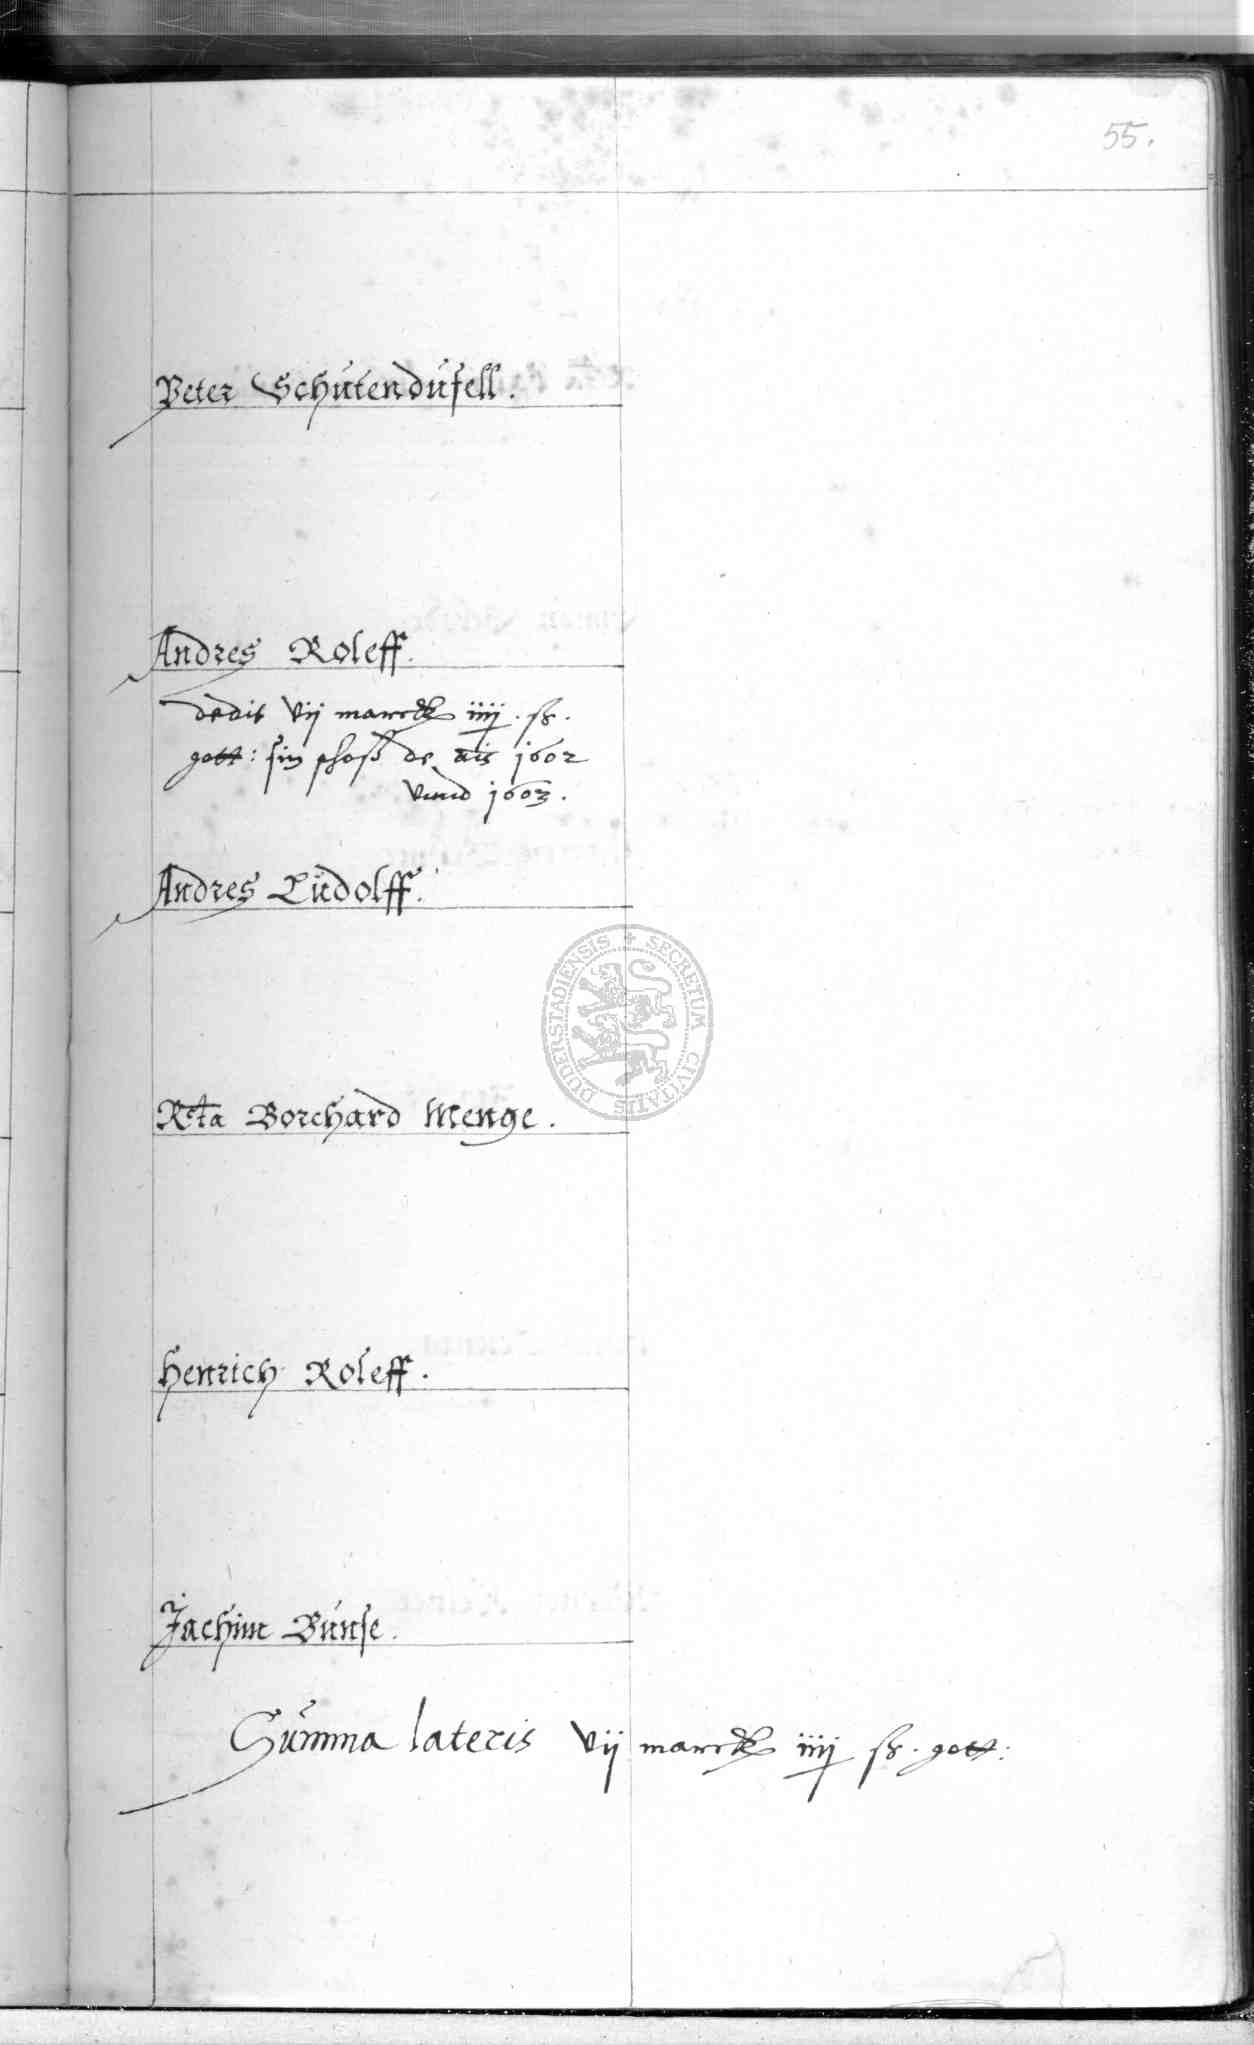 55.
Peter Schütendüfell.
Andres Roleff.
dedit vij marck iiij . ß .
gott: sin schoß de ais 1602
vnnd 1603 .
Andres Lüdolff.
Rcta Borchard Menge .
Henrich Roleff .
Jachim Bunse .
Summa lateris vij marck iiij ß . gott:
SECRETUM CIVITATIS DUDERSTADIENSIS